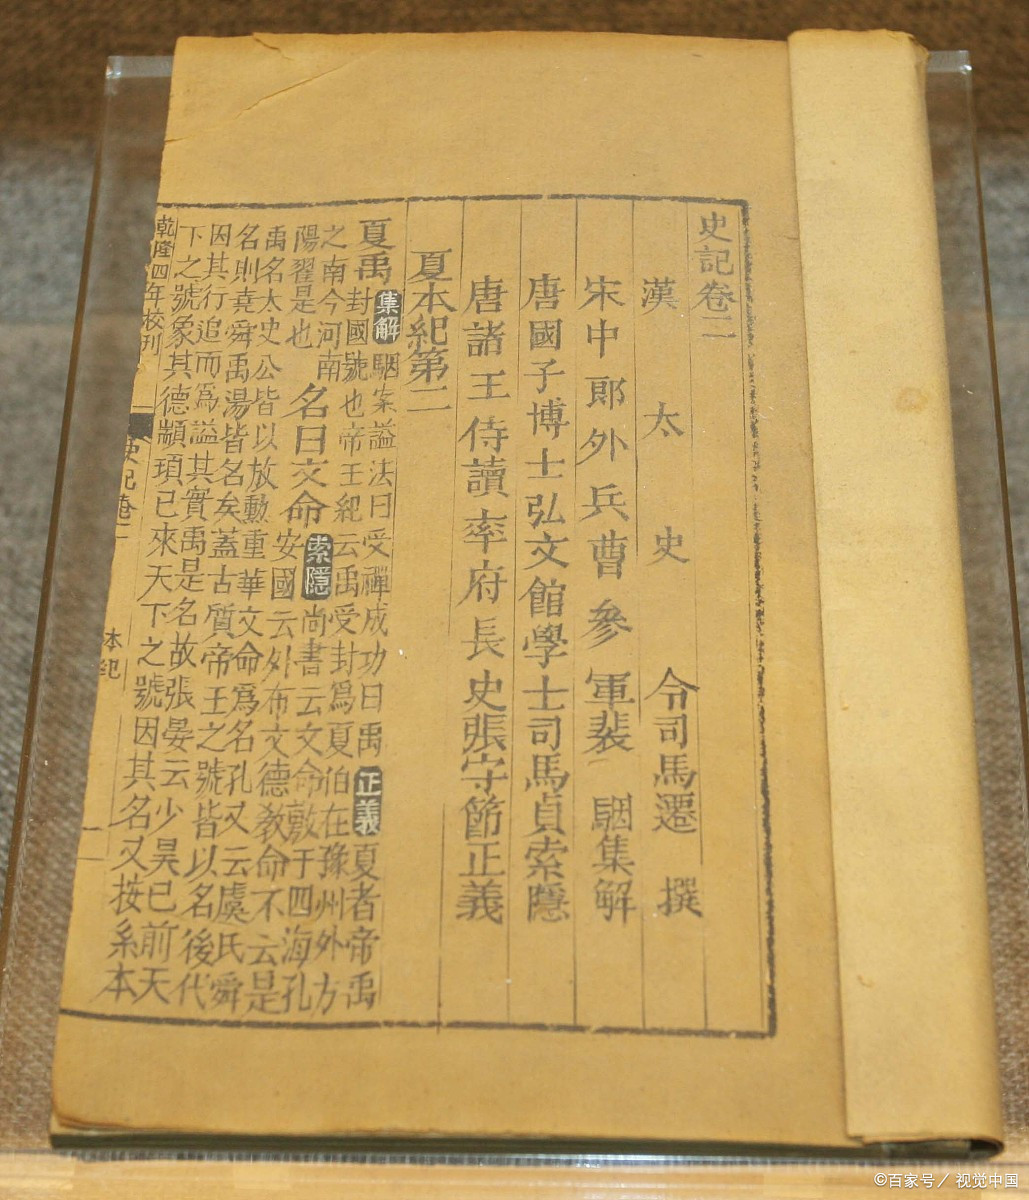 史記卷二
漢太史令司馬遷撰
宋中郎外兵曹參軍裴駰集解
唐國子博士弘文館學士司馬貞索隱
唐諸王侍讀率府長史張守節正義
夏本紀第二
夏禹集解駰案諡法曰受禪成功曰禹正義夏者帝禹
封國號也帝王紀云禹受封爲夏伯在豫州外方
之南今河南
陽翟是也
名曰文命索隱尚書云文命敷于四海孔
安國云外布文德教命不云是
禹名太史公皆以放勳重華文命爲名孔又云虞氏舜
名則堯舜禹湯皆名矣蓋古質帝王之號皆以名後代
因其行追而爲諡其實禹是名故張晏云少昊已前天
下之號象其德顓頊已來天下之號因其名又按系本
乾隆四年校刊
史記卷二
本紀
©百家号／视觉中国